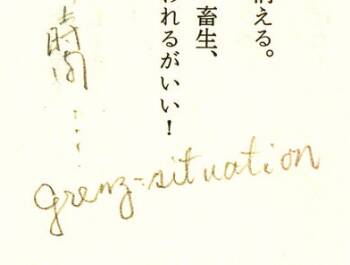 消える。
畜生、
われるがいい！
時間……
grenz-situation